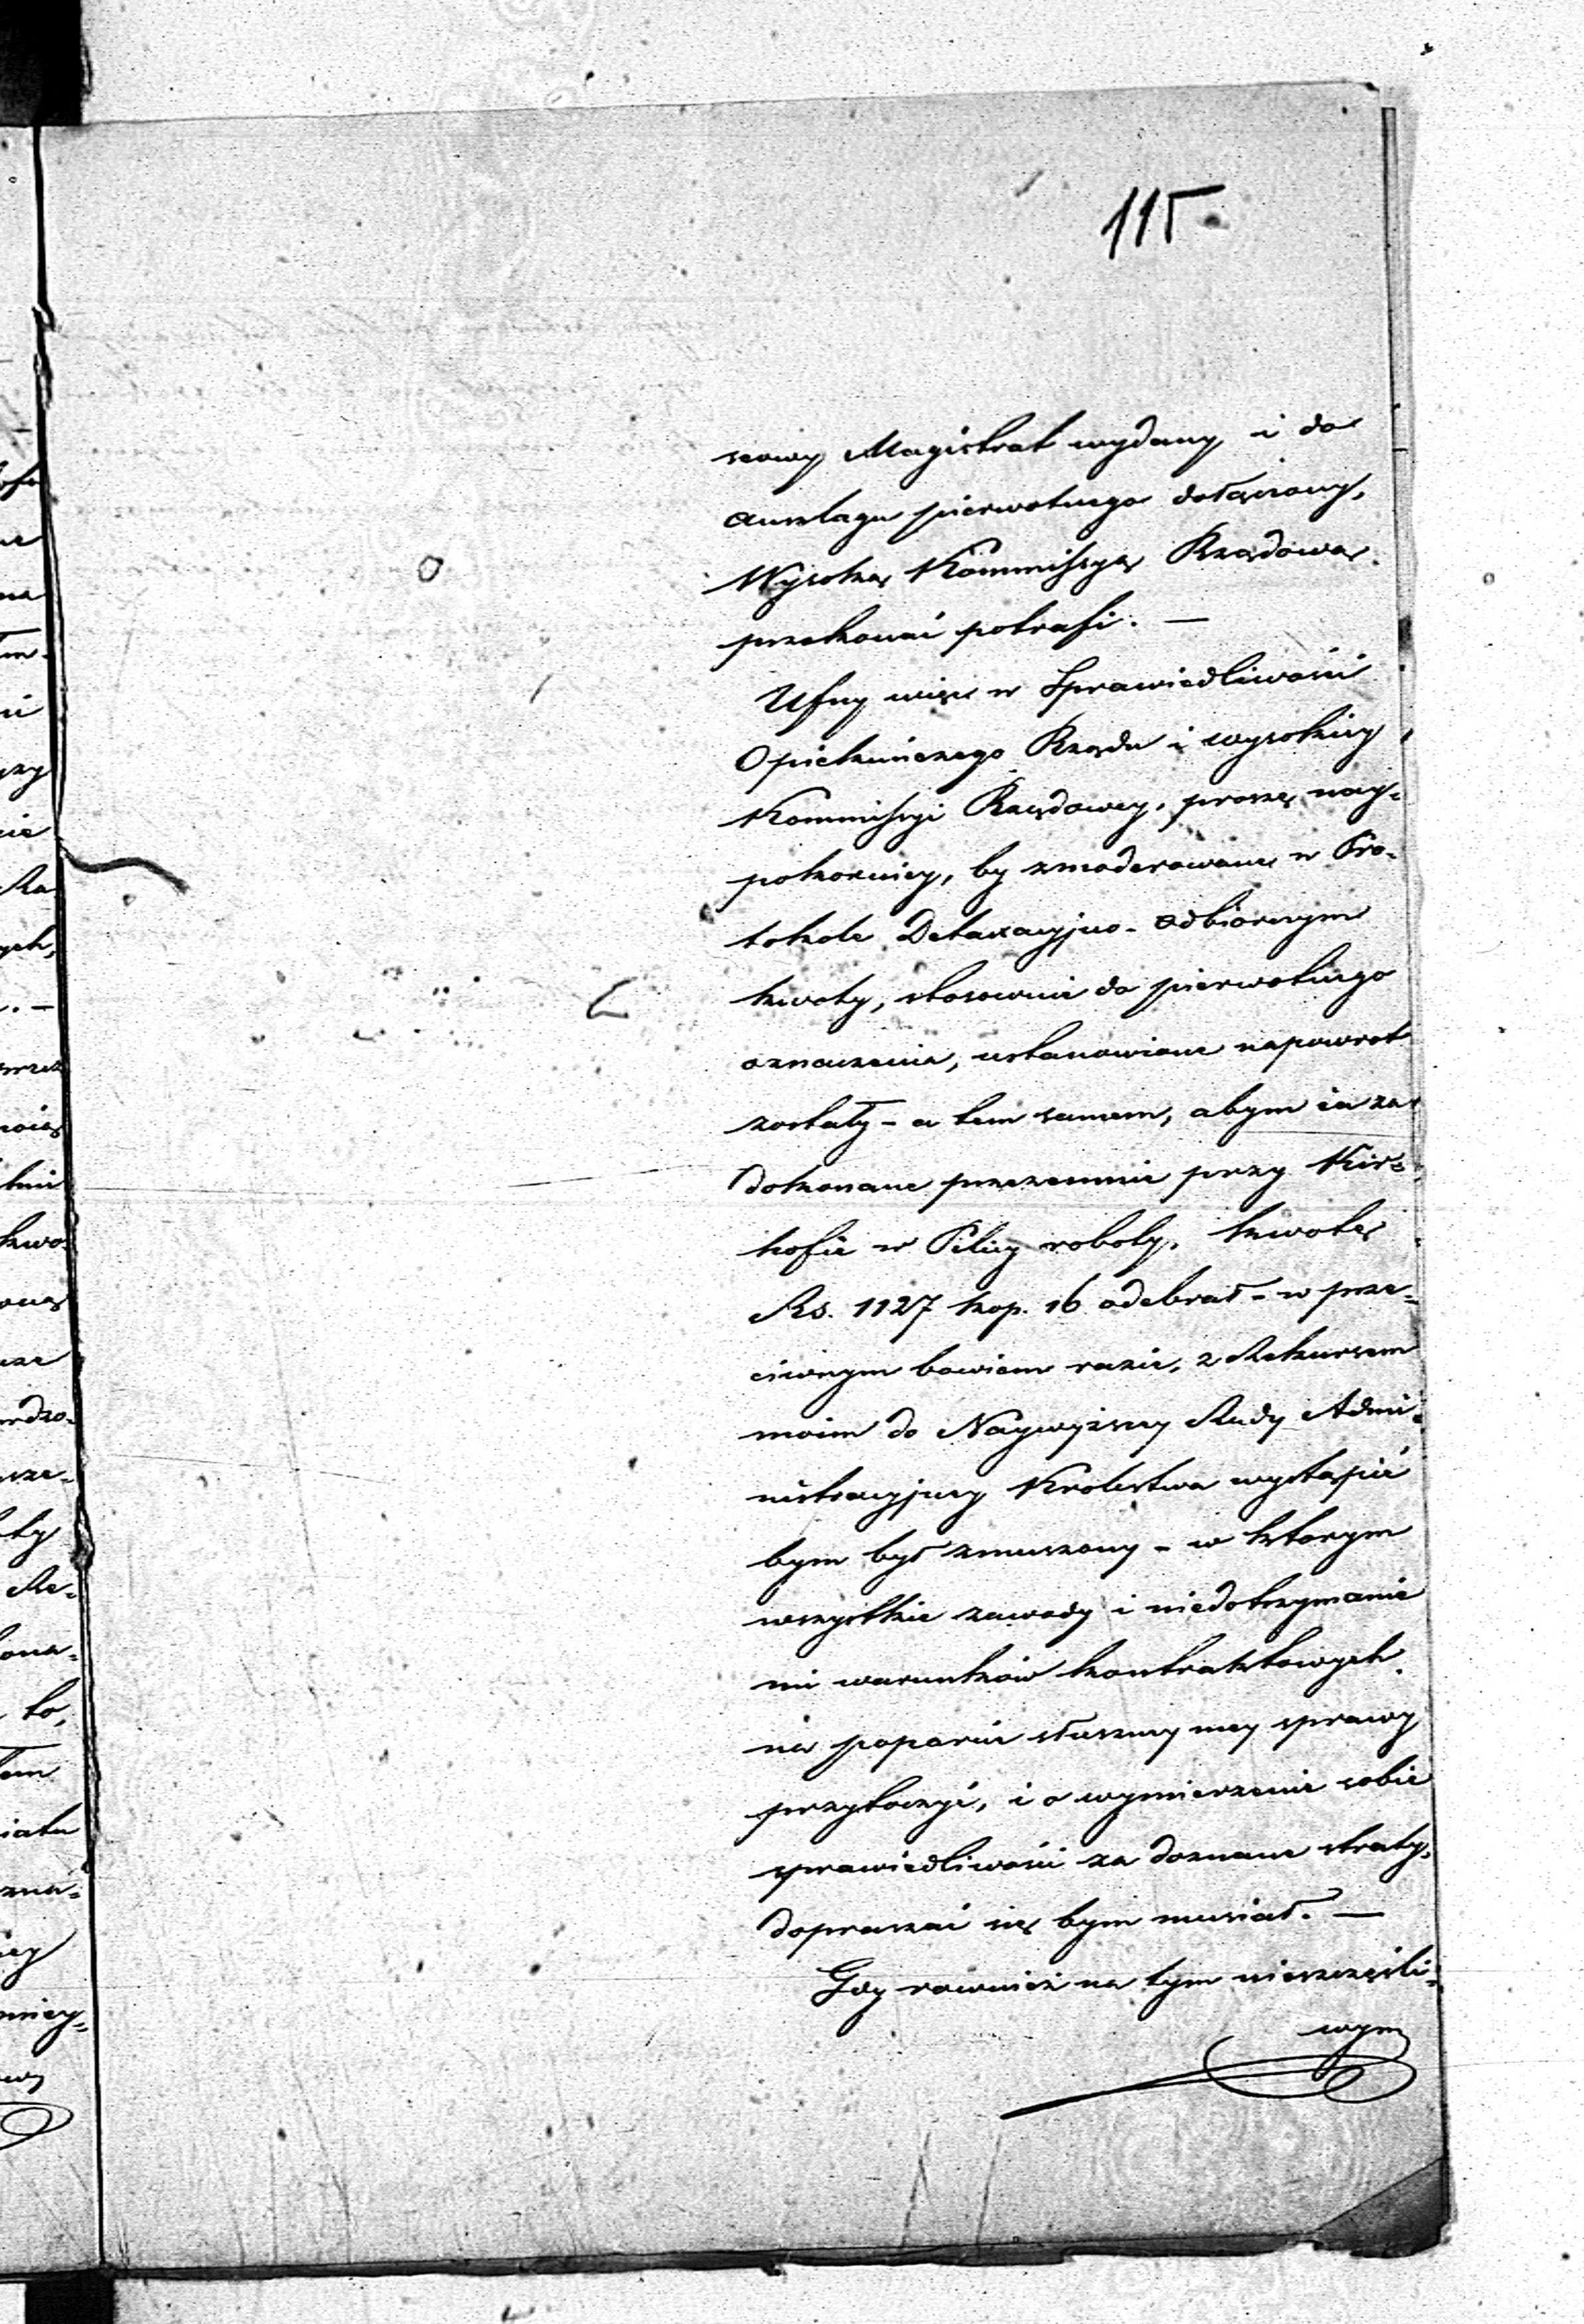 115
scowy Magistrat wydany i do
Anszlagu pierwotnego dołączony,
Wysoką Kommissyą Rządową
przekonać potrafi. —
Ufny więc w Sprawiedliwości
Opiekuńczego Rządu i wysokiey
Kommissyi Rządowey, proszę nay=
pokorniey, by zmoderowane w Pro-
tokole Detaxacyjno-odbiorczym
kwoty, stosownie do pierwotnego
oznaczenia, ustanowione napowrot
zostały – a tem samem, abym ia za
dokonane przezemnie przy Kir=
kofie w Pilicy roboty, kwotę
Rs. 1127 kop. 16 odebrał – w prze=
ciwnym bowiem razie, z Rekursem
moim do Naywyższey Rady Admi=
nistracyjney Krolestwa wystąpić
bym był zmuszony – w ktorym
wszystkie zawody i niedotrzymanie
mi warunkow kontraktowych
na poparcie słuszney mey sprawy
przytoczyć, i o wymierzenie sobie
sprawiedliwości za doznane straty,
dopraszać się bym musiał. —
Gdy rownież na tym nieszczęśli=
wym